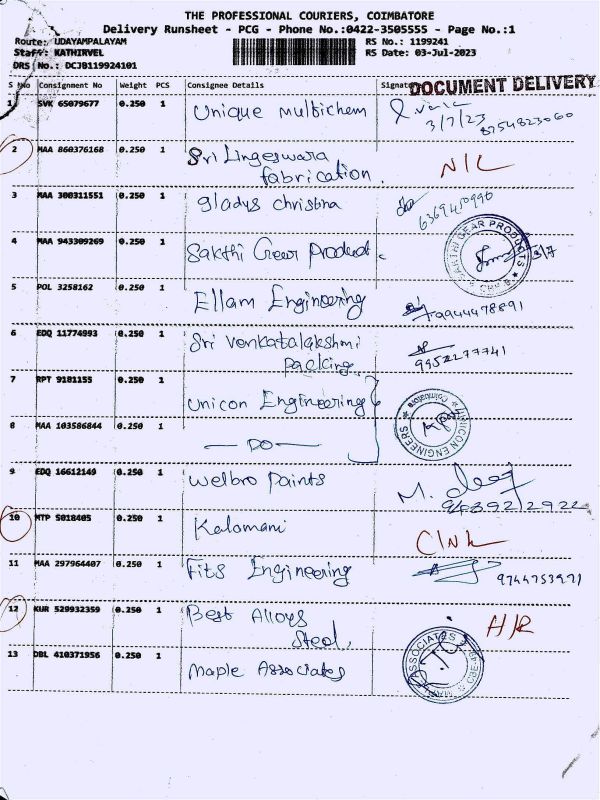 THE PROFESSIONAL COURIERS, COIMBATORE
Delivery Runsheet - PCG - Phone No.:0422-3505555 - Page No.:1
Route: UDAYAMPALAYAM RS No.: 1199241
Staff: KATHIRVEL RS Date: 03-Jul-2023
DRS No.: DCJB119924101
S No Consignment No Weight PCS Consignee Details Signature
DOCUMENT DELIVERY
1 SVK 65079677 0.250 1 Unique multichem 3/7/23 8754823060
2 MAA 860376168 0.250 1 Sri Lingeswara N/L
fabrication.
3 MAA 300311551 0.250 1 gladys christina
4 MAA 943309269 0.250 1 Sakthi Gear Product. SAKTHI GEAR PRODUCTS CBE 3/7
5 POL 3258162 0.250 1 Ellam Engineering 9944478891
6 EDQ 11774993 0.250 1 Sri Venkatalakshmi
packing. 9952277741
7 RPT 9181155 0.250 1 Unicon Engineering UNICON ENGINEERS Coimbatore
8 MAA 103586844 0.250 1 — DO —
9 EDQ 16612149 0.250 1 Welbro paints M.
10 MTP 5018405 0.250 1 Kalomani
11 MAA 297964407 0.250 1 Fits Engineering 9744753971
12 KUR 529932359 0.250 1 Best Alloys H/R
Steel,
13 DBL 410371956 0.250 1 Maple Associates ASSOCIATES